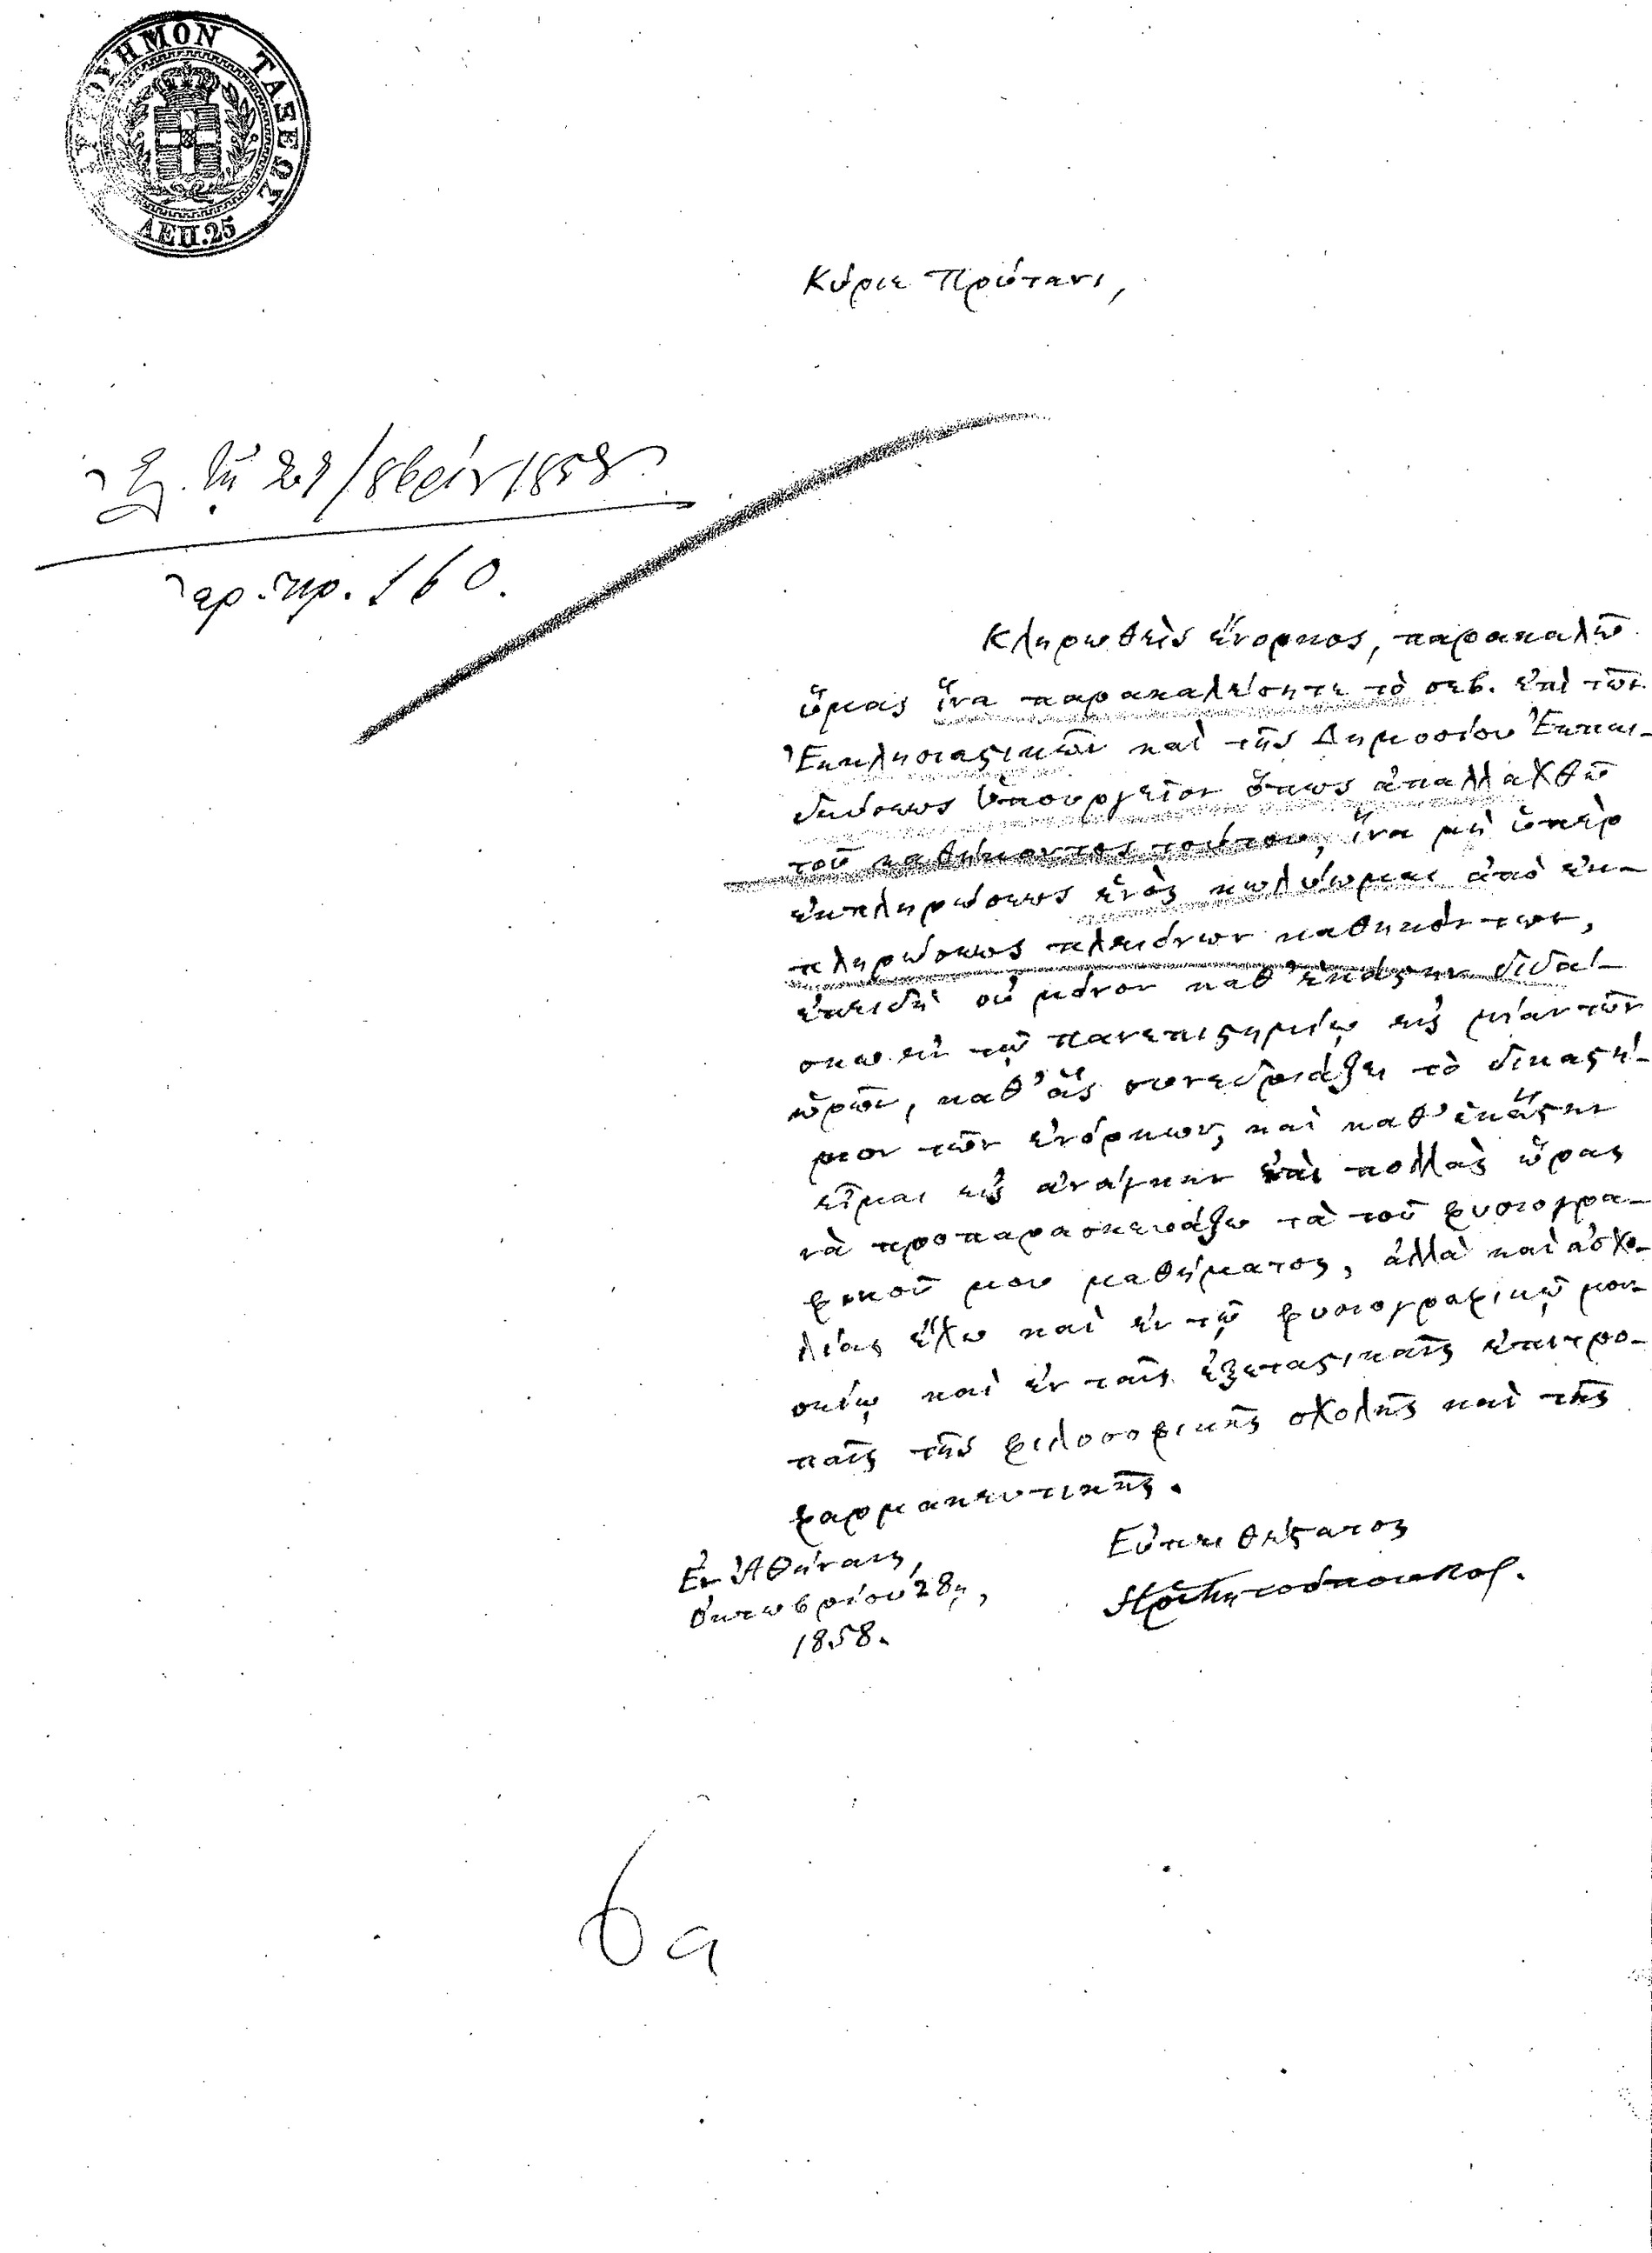 ΤΑΞΕΩΣ
ΛΕΠ.25
Κύριε Πρύτανι,
τῇ 29/8βρίου 1858
ἀρ. πρ. 160.
Κληρωθεὶς ἔνορκος, παρακαλῶ
ὑμᾶς ἵνα παρακαλέσητε τὸ σεβ. ἐπὶ τῶν
Ἐκκλησιαστικῶν καὶ τῆς Δημοσίου Ἐκπαι-
δεύσεως Ὑπουργεῖον ὅπως ἀπαλλαχθῶ
τοῦ καθήκοντος τούτου, ἵνα μὴ ὑπὲρ
ἐκπληρώσεως ἑνὸς κωλύωμαι ἀπὸ ἐκ-
πληρώσεως πλειόνων καθηκόντων,
ἐπειδὴ οὐ μόνον καθ' ἑκάστην διδά-
σκω ἐν τῷ Πανεπιστημίῳ εἰς μίαν τῶν
ὡρῶν, καθ' ἃς συνεδριάζει τὸ δικαστή-
ριον τῶν ἐνόρκων, καὶ καθ' ἑκάστην
εἶμαι εἰς ἀνάγκην ἐπὶ πολλὰς ὥρας
νὰ προπαρασκευάζω τὰ τοῦ φυσιογρα-
φικοῦ μου μαθήματος, ἀλλὰ καὶ ἀσχο-
λίας ἔχω καὶ ἐν τῷ φυσιογραφικῷ μου-
σείῳ καὶ ἐν ταῖς ἐξεταστικαῖς ἐπιτρο-
παῖς τῆς φιλοσοφικῆς σχολῆς καὶ τῆς
φαρμακευτικῆς.
Εὐπειθέστατος
Ἐν Ἀθήναις,
Ὀκτωβρίου 28ῃ,
1858.
6α